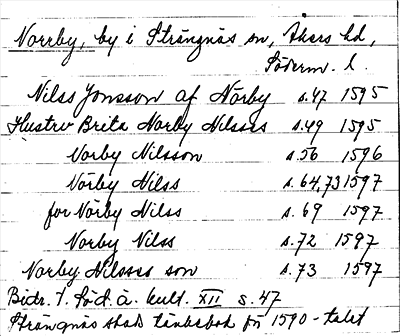 Norrby, by i Strängnäs sn, Åkers hd,
Söderm. l.
Nilss Jonsson af Nörby s.47 1595
Hustrv Brita Norby Nilsses s.49 1595
Norby Nilsson s.56 1596
Nörby Nilss s.64,73 1597
for Nörby Nilss s.69 1597
Norby Nilss s.72 1597
Norby Nilsses son s.73 1597
Bidr. t. Söd. ä. kult. XII s.47
Strängnäs stads tänkebok fr 1590-talet